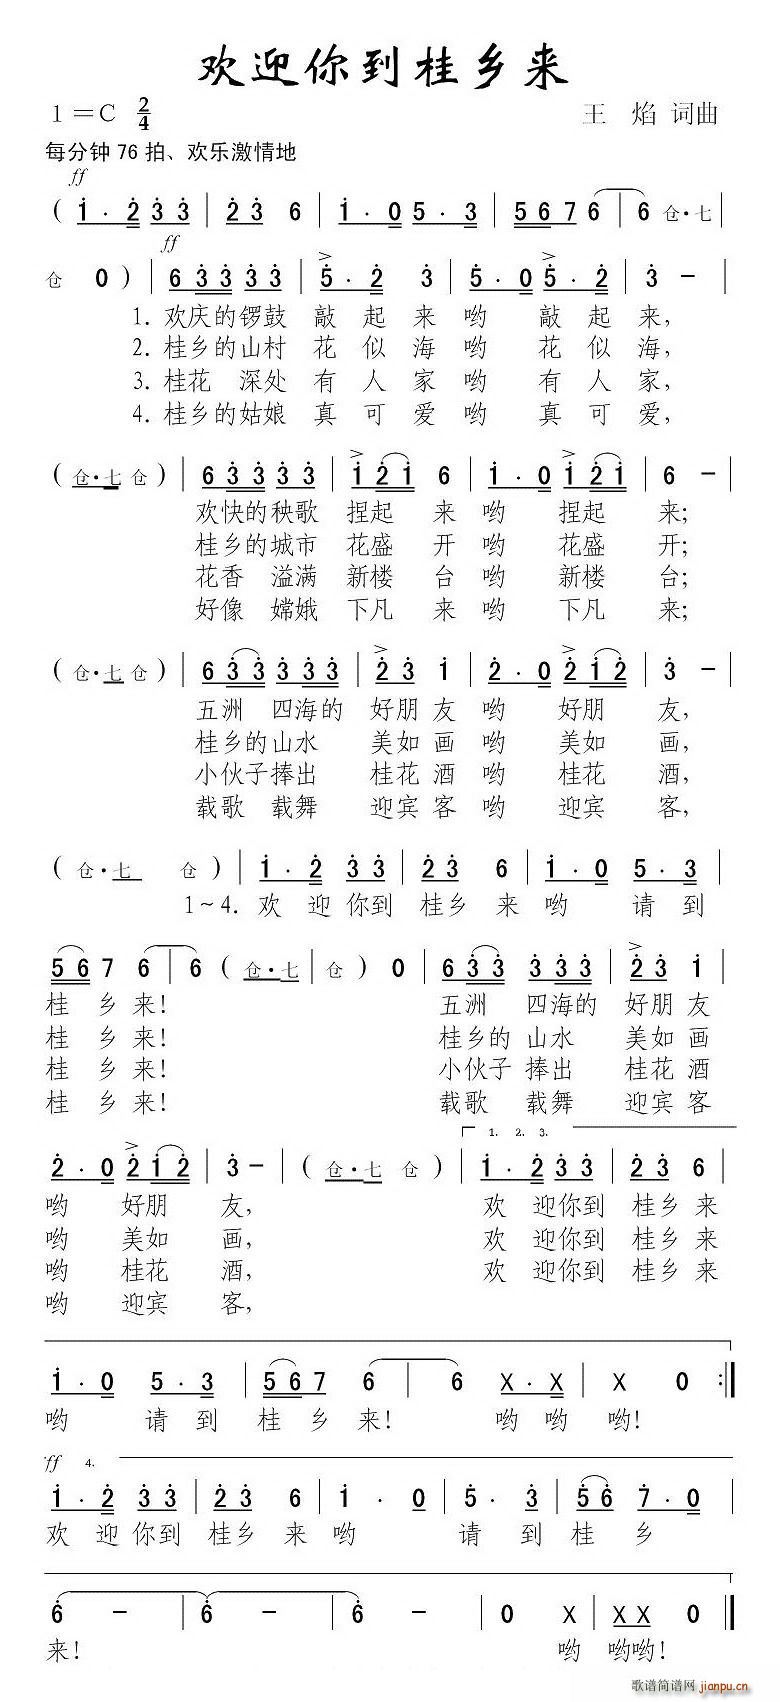 欢迎你到桂乡来
1=C 2/4 王 焰 词曲
每分钟 76 拍、欢乐激情地
ff
( 1 · 2 3 3 | 2 3 6 | 1 · 0 5 · 3 | 5 6 7 6 | 6 仓 · 七 |
ff
仓 0 ) | 6 3 3 3 3 | 5 · 2 3 | 5 · 0 5 · 2 | 3 － |
1. 欢庆的锣鼓 敲 起 来 哟 敲 起 来,
2. 桂乡的山村 花 似 海 哟 花 似 海,
3. 桂花 深处 有 人 家 哟 有 人 家,
4. 桂乡的姑娘 真 可 爱 哟 真 可 爱,
( 仓 · 七 仓 ) | 6 3 3 3 3 | 1 2 1 6 | 1 · 0 1 2 1 | 6 － |
欢快的秧歌 捏起 来 哟 捏起 来;
桂乡的城市 花盛 开 哟 花盛 开;
花香 溢满 新楼 台 哟 新楼 台;
好像 嫦娥 下凡 来 哟 下凡 来;
( 仓 · 七 仓 ) | 6 3 3 3 3 3 | 2 3 1 | 2 · 0 2 1 2 | 3 － |
五洲 四海的 好朋 友 哟 好朋 友,
桂乡的山水 美如 画 哟 美如 画,
小伙子捧出 桂花 酒 哟 桂花 酒,
载歌 载舞 迎宾 客 哟 迎宾 客,
( 仓 · 七 仓 ) | 1 · 2 3 3 | 2 3 6 | 1 · 0 5 · 3 |
1～4. 欢 迎 你到 桂乡 来 哟 请 到
5 6 7 6 | 6 ( 仓 · 七 | 仓 ) 0 | 6 3 3 3 3 3 | 2 3 1 |
桂 乡 来! 五洲 四海的 好朋 友
桂 乡 来! 桂乡的 山水 美如 画
桂 乡 来! 小伙子 捧出 桂花 酒
桂 乡 来! 载歌 载舞 迎宾 客
1. 2. 3.
2 · 0 2 1 2 | 3 － | ( 仓 · 七 仓 ) | 1 · 2 3 3 | 2 3 6 |
哟 好朋 友, 欢 迎你到 桂乡 来
哟 美如 画, 欢 迎你到 桂乡 来
哟 桂花 酒, 欢 迎你到 桂乡 来
哟 迎宾 客,
1 · 0 5 · 3 | 5 6 7 6 | 6 X · X | X 0 :|
哟 请 到 桂 乡 来! 哟 哟 哟!
ff 4.
1 · 2 3 3 | 2 3 6 | 1 · 0 | 5 · 3 | 5 6 7 · 0 |
欢 迎 你到 桂乡 来 哟 请 到 桂 乡
6 － | 6 － | 6 － | 0 X | X X 0 |
来! 哟 哟哟!
歌谱简谱网
jianpu.cn